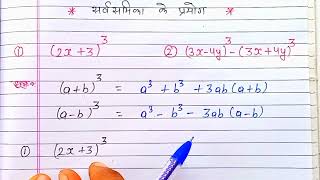 * सर्वसमिका के प्रयोग *
① (2x+3)³ ② (3x-4y)³-(3x+4y)³
(a+b)³ = a³ + b³ + 3ab (a+b)
(a-b)³ = a³ - b³ - 3ab (a-b)
① (2x+3)³